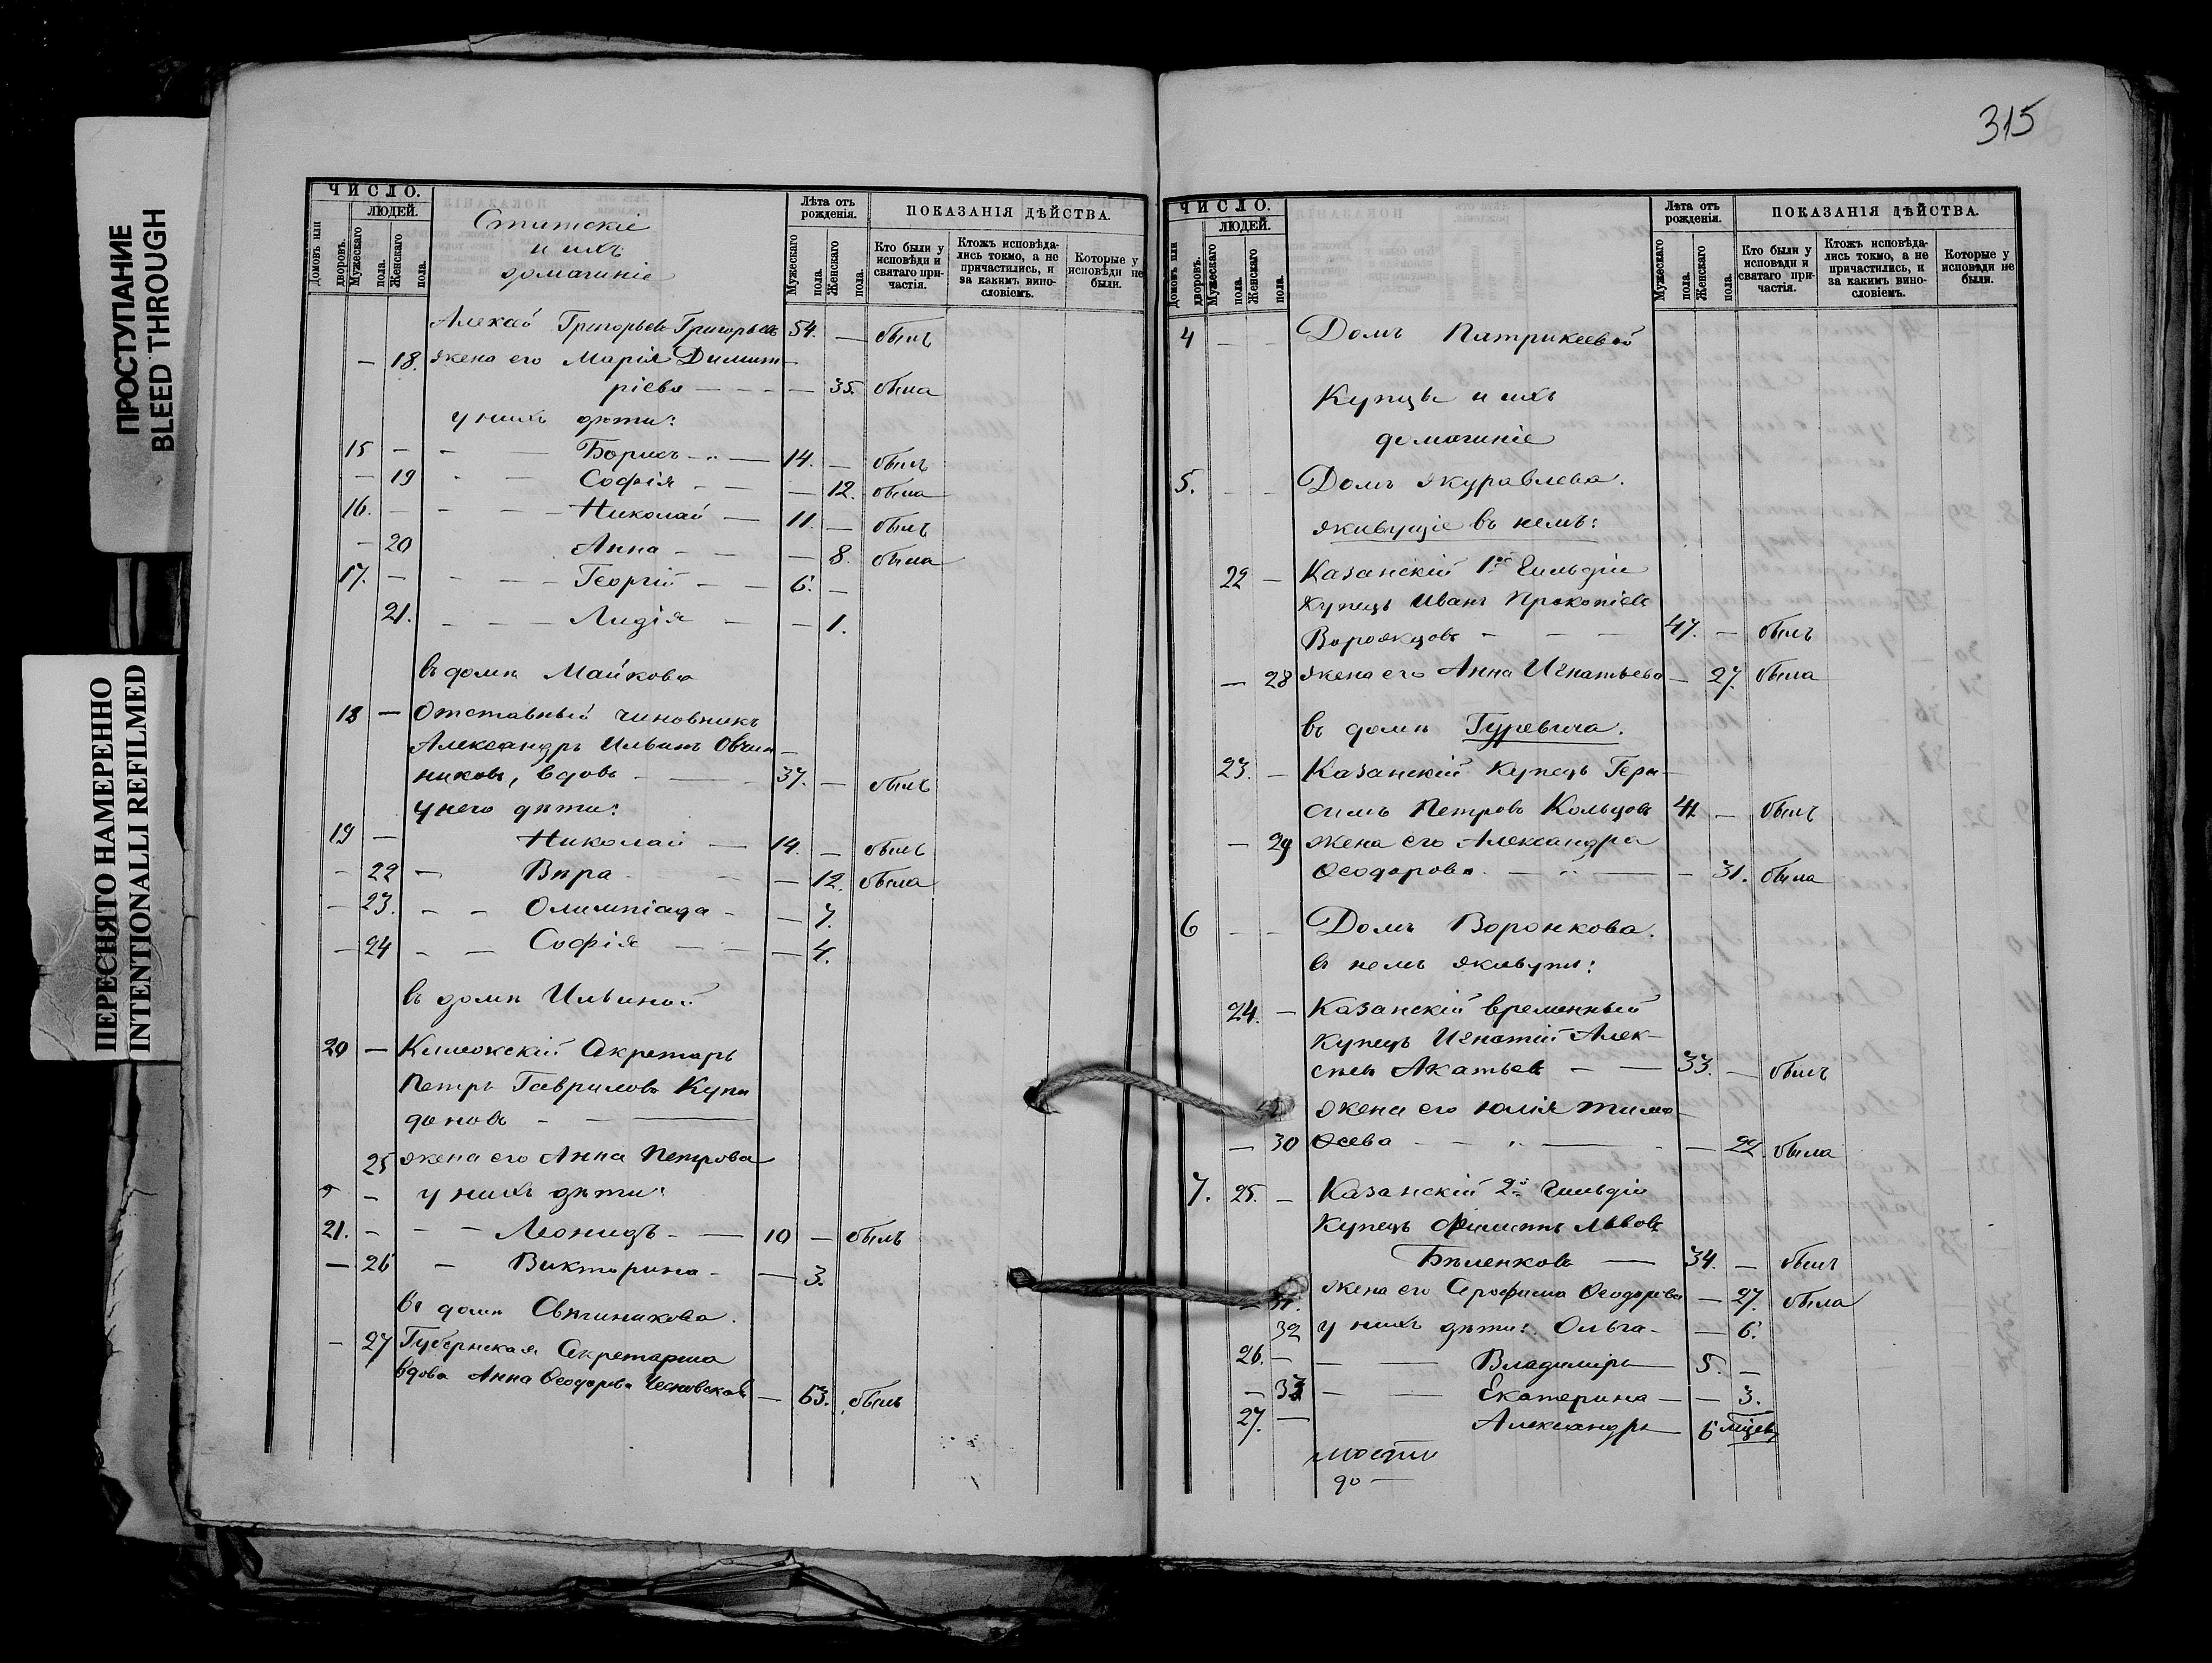 ПРОСТУПАНИЕ
BLEED THROUGH
ПЕРЕСНЯТО НАМЕРЕННО
INTENTIONALLI REFILMED
ЧИСЛО.
ЛЮДЕЙ.
Домовъ или дворовъ.
Мужескаго пола.
Женскаго пола.
Статскіе
и ихъ
домашніе
Лѣта отъ рожденія.
Мужескаго пола.
Женскаго пола.
ПОКАЗАНІЯ ДѢЙСТВА.
Кто были у исповѣди и святаго причастія.
Ктожъ исповѣдались токмо, а не причастились, и за какимъ винословіемъ.
Которые у исповѣди не были.
Алексѣй Григорьевъ Григорьевъ 54. — былъ
— 18. жена его Марія Димит-
ріева — — — — 35. была
у нихъ дѣти:
15 — — — Борисъ — — 14. — былъ
— 19 — — Софія — — — 12. была
16. — — — Николай — 11. — былъ
— 20 Анна — — — 8. была
17. — — — Георгій — — 6. —
21. — — — Лидія — — 1.
въ домѣ Майкова
18 — Отставный чиновникъ
Александръ Ильинъ Овчин-
никовъ, вдовъ — — 37. — былъ
у него дѣти:
19 — Николай — 14. — былъ
— 22 — Вѣра — — — 12. была
— 23. — — Олимпіада — — 7.
— 24 — — Софія — — — 4.
въ домѣ Ильиной
20 — Секретарь
Петръ Гавриловъ Купи
доновъ — —
25 жена его Анна Петрова
у нихъ дѣти:
21. — — — Леонидъ — — 10 — былъ
— 26 — Викторина — — 3.
въ домѣ Свѣчникова.
— 27 Губернская Секретарша
вдова Анна Ѳеодорова — 53. былъ
315
ЧИСЛО.
ЛЮДЕЙ.
Домовъ или дворовъ.
Мужескаго пола.
Женскаго пола.
Лѣта отъ рожденія.
Мужескаго пола.
Женскаго пола.
ПОКАЗАНІЯ ДѢЙСТВА.
Кто были у исповѣди и святаго причастія.
Ктожъ исповѣдались токмо, а не причастились, и за какимъ винословіемъ.
Которые у исповѣди не были.
4 — — Домъ Патрикеевой
Купцы и ихъ
домашніе
5. — — Домъ Журавлева.
живущіе въ немъ:
22 — Казанскій 1ой Гильдіи
Купецъ Иванъ Прокопіевъ
Ворожцовъ — — — 47. — былъ
— 28 жена его Анна Игнатьева — 27. была
въ домѣ Гуревича.
23. — Казанскій Купецъ Гера-
симъ Петровъ Кольцовъ 41. — былъ
— 29 жена его Александра
Ѳеодорова — — — 31. была
6 — — Домъ Воронкова.
въ немъ живутъ:
24. — Казанскій временный
Купецъ Игнатій Алек-
сѣевъ Акатьевъ — — 33. — былъ
жена его Юлія Тимо-
— 30 ѳеева — — — — 22. была
7. 25. — Казанскій 2й Гильдіи
Купецъ Филиппъ Львовъ
Бѣленковъ — 34. — былъ
— 31. жена его Серафима Ѳеодорова — 27. была
32 у нихъ дѣти: Ольга — — 6.
26. — — — Владиміръ — 5. —
— 33 — — Екатерина — — 3.
27. — Александръ — 6 мѣсяц.